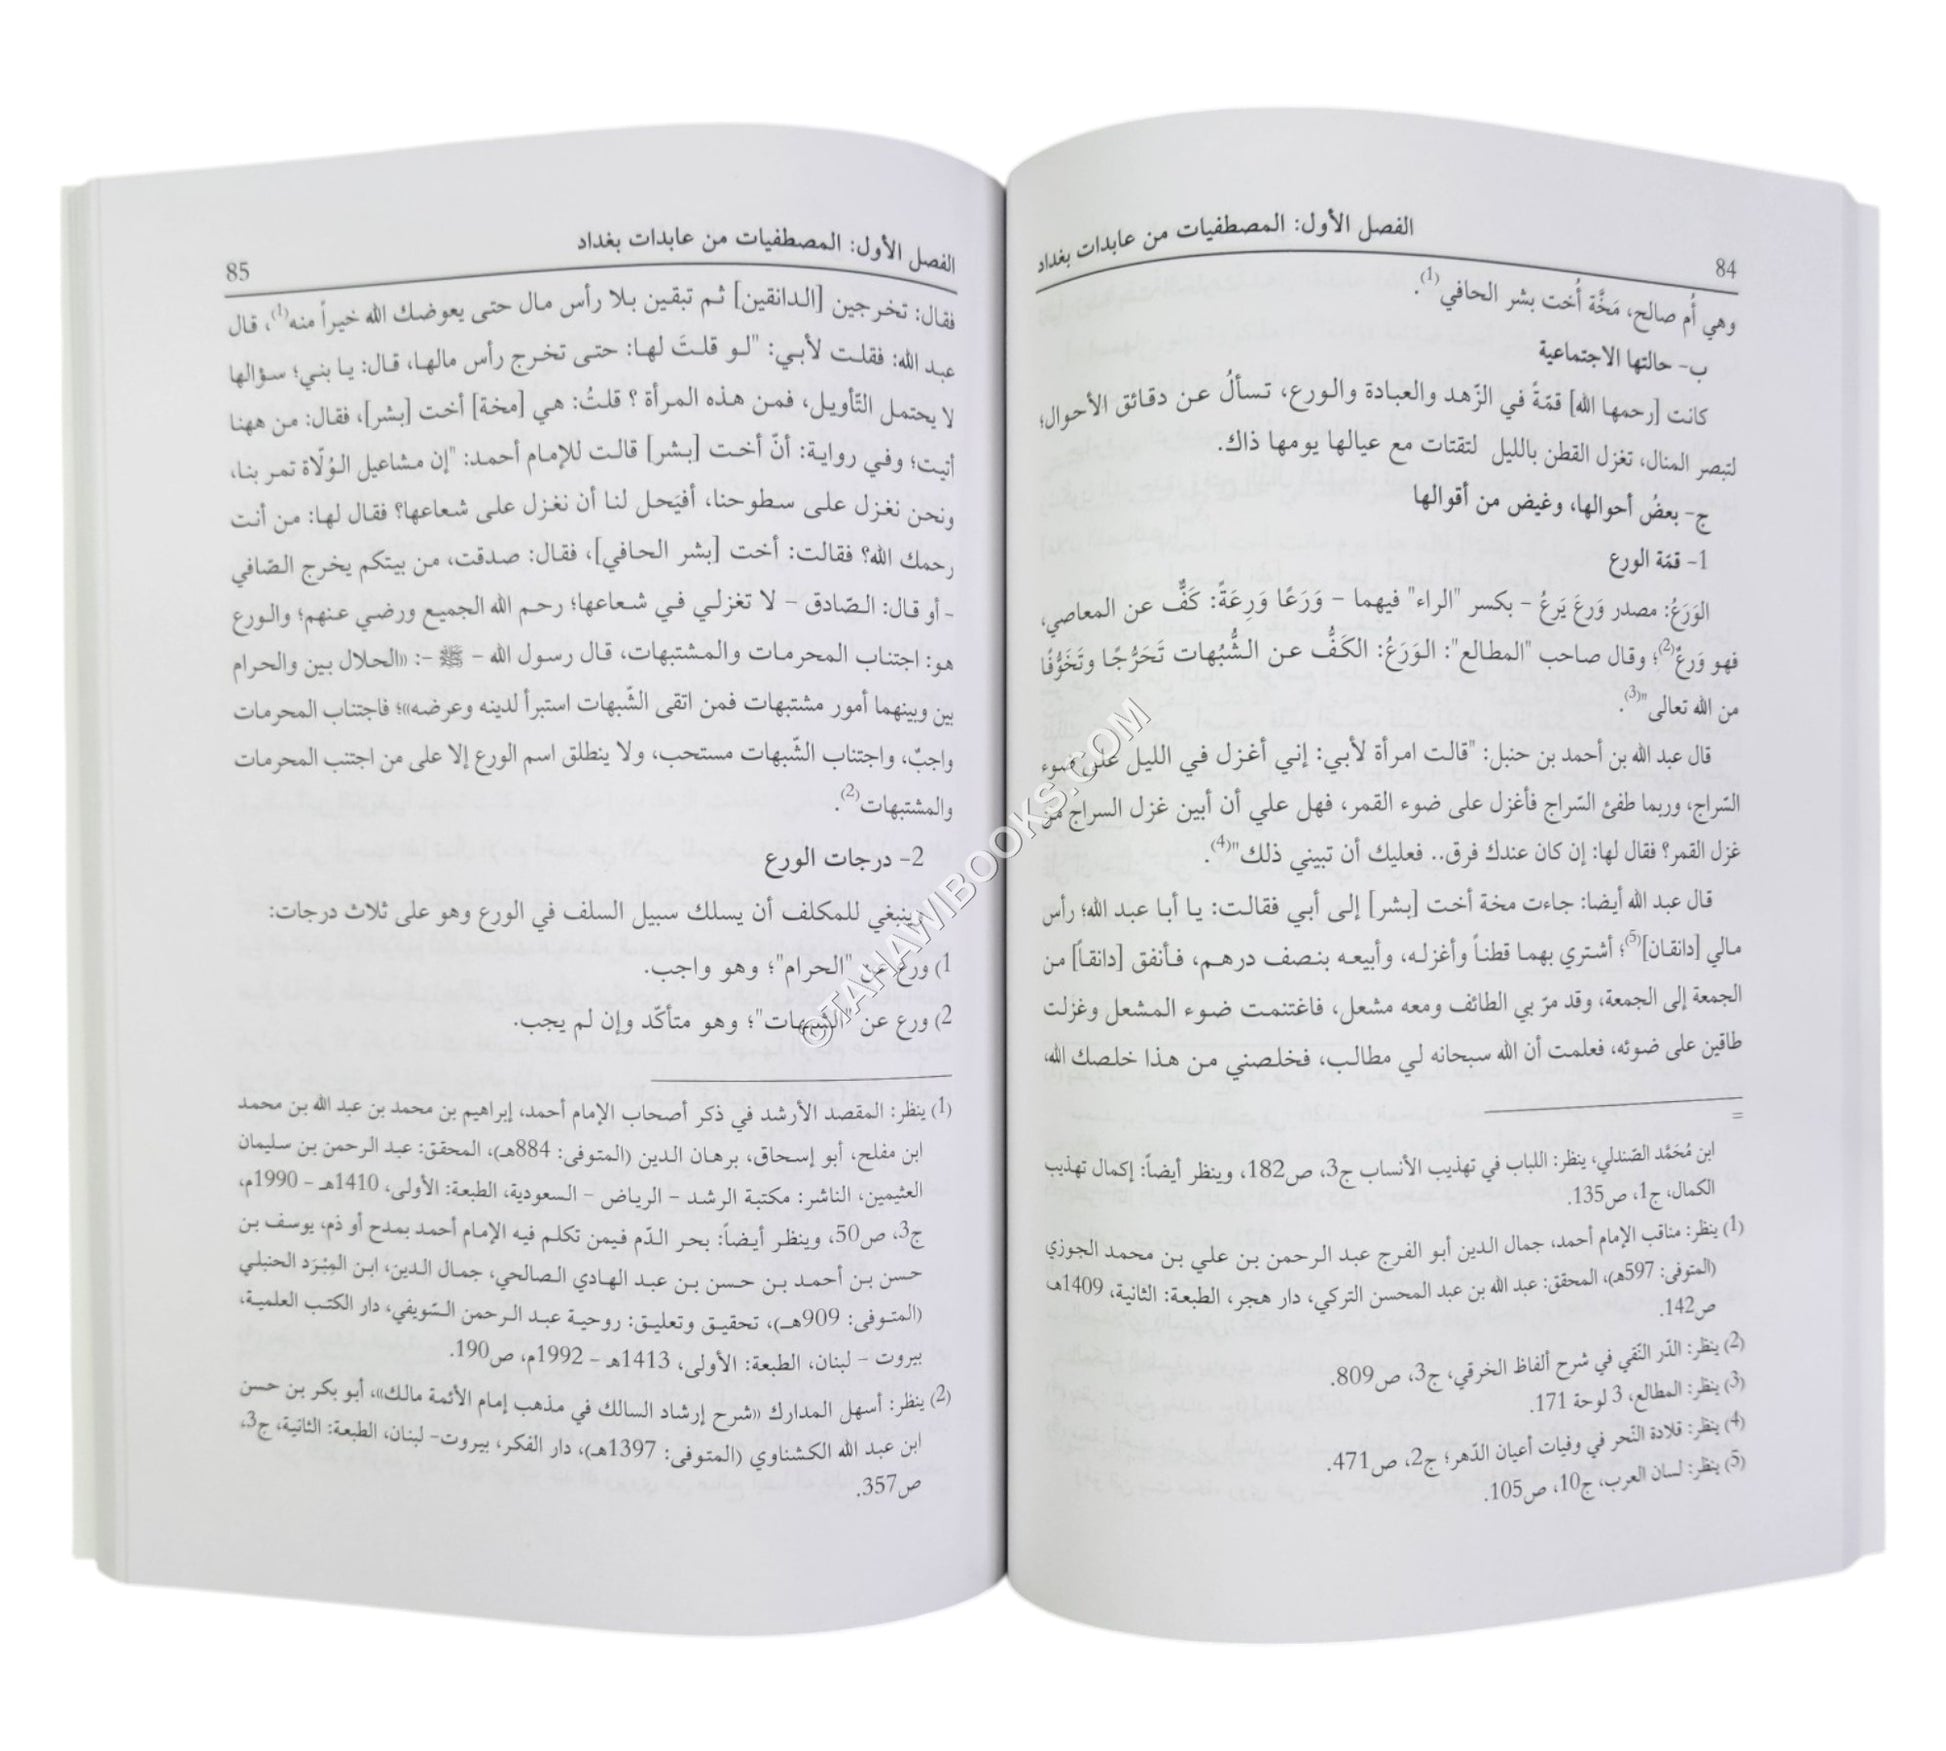 84
الفصل الأول: المصطفيات من عابدات بغداد
وهي أُم صالح، مَخَّة أُخت بشر الحافي(1).
ب- حالتها الاجتماعية
كانت [رحمها الله] قمّةً في الزّهد والعبادة والورع، تسألُ عن دقائق الأحوال؛
لتبصر المنال، تغزل القطن بالليل لتقتات مع عيالها يومها ذاك.
ج- بعضُ أحوالها، وغيض من أقوالها
1- قمّة الورع
الوَرَعُ: مصدر وَرِعَ يَرِعُ – بكسر "الراء" فيهما – وَرَعًا وَرِعَةً: كَفٌّ عن المعاصي،
فهو وَرِعٌ(2)؛ وقال صاحب "المطالع": الوَرَعُ: الكَفُّ عن الشُّبُهات تَحَرُّجًا وتَخَوُّفًا
من الله تعالى"(3).
قال عبد الله بن أحمد بن حنبل: "قالت امرأة لأبي: إني أغزل في الليل على ضوء
السّراج، وربما طفئ السّراج فأغزل على ضوء القمر، فهل علي أن أبين غزل السراج من
غزل القمر؟ فقال لها: إن كان عندك فرق.. فعليك أن تبيني ذلك"(4).
قال عبد الله أيضا: جاءت مخة أخت [بشر] إلى أبي فقالت: يا أبا عبد الله؛ رأس
مالي [دانقان](5)؛ أشتري بهما قطناً وأغزله، وأبيعه بنصف درهم، فأنفق [دانقاً] من
الجمعة إلى الجمعة، وقد مرّ بي الطائف ومعه مشعل، فاغتنمت ضوء المشعل وغزلت
طاقين على ضوئه، فعلمت أن الله سبحانه لي مطالب، فخلصني من هذا خلصك الله،
=
ابن مُحَمَّد الصّندلي، ينظر: اللباب في تهذيب الأنساب ج3، ص182، وينظر أيضاً: إكمال تهذيب
الكمال، ج1، ص135.
(1) ينظر: مناقب الإمام أحمد، جمال الدين أبو الفرج عبد الرحمن بن علي بن محمد الجوزي
(المتوفى: 597هـ)، المحقق: عبد الله بن عبد المحسن التركي، دار هجر، الطبعة: الثانية، 1409هـ
ص142.
(2) ينظر: الدّر النّقي في شرح ألفاظ الخرقي، ج3، ص809.
(3) ينظر: المطالع، 3 لوحة 171.
(4) ينظر: قلادة النّحر في وفيات أعيان الدّهر؛ ج2، ص471.
(5) ينظر: لسان العرب، ج10، ص105.
الفصل الأول: المصطفيات من عابدات بغداد
85
فقال: تخرجين [الدانقين] ثم تبقين بلا رأس مال حتى يعوضك الله خيراً منه(1)، قال
عبد الله: فقلت لأبي: "لو قلتَ لها: حتى تخرج رأس مالها، قال: يا بني؛ سؤالها
لا يحتمل التّأويل، فمن هذه المرأة ؟ قلتُ: هي [مخة] أخت [بشر]، فقال: من ههنا
أتيت؛ وفي رواية: أنّ أخت [بشر] قالت للإمام أحمد: "إن مشاعيل الوُلّاة تمر بنا،
ونحن نغزل على سطوحنا، أفيَحل لنا أن نغزل على شعاعها؟ فقال لها: من أنت
رحمك الله؟ فقالت: أخت [بشر الحافي]، فقال: صدقت، من بيتكم يخرج الصّافي
– أو قال: الصّادق – لا تغزلي في شعاعها؛ رحم الله الجميع ورضي عنهم؛ والورع
هو: اجتناب المحرمات والمشتبهات، قال رسول الله – ﷺ –: ((الحلال بين والحرام
بين وبينهما أمور مشتبهات فمن اتقى الشّبهات استبرأ لدينه وعرضه))؛ فاجتناب المحرمات
واجبٌ، واجتناب الشّبهات مستحب، ولا ينطلق اسم الورع إلا على من اجتنب المحرمات
والمشتبهات(2).
2- درجات الورع
وينبغي للمكلف أن يسلك سبيل السلف في الورع وهو على ثلاث درجات:
1) ورع عن "الحرام"؛ وهو واجب.
2) ورع عن "الشبهات"؛ وهو متأكّد وإن لم يجب.
(1) ينظر: المقصد الأرشد في ذكر أصحاب الإمام أحمد، إبراهيم بن محمد بن عبد الله بن محمد
ابن مفلح، أبو إسحاق، برهان الدين (المتوفى: 884هـ)، المحقق: عبد الرحمن بن سليمان
العثيمين، الناشر: مكتبة الرشد – الرياض – السعودية، الطبعة: الأولى، 1410هـ – 1990م،
ج3، ص50، وينظر أيضاً: بحر الدّم فيمن تكلم فيه الإمام أحمد بمدح أو ذم، يوسف بن
حسن بن أحمد بن حسن بن عبد الهادي الصالحي، جمال الدين، ابن المِبْرَد الحنبلي
(المتوفى: 909هـ)، تحقيق وتعليق: روحية عبد الرحمن السّويفي، دار الكتب العلمية،
بيروت – لبنان، الطبعة: الأولى، 1413هـ – 1992م، ص190.
(2) ينظر: أسهل المدارك ((شرح إرشاد السالك في مذهب إمام الأئمة مالك))، أبو بكر بن حسن
ابن عبد الله الكشناوي (المتوفى: 1397هـ)، دار الفكر، بيروت- لبنان، الطبعة: الثانية، ج3،
ص357.
©TAHAWIBOOKS.COM